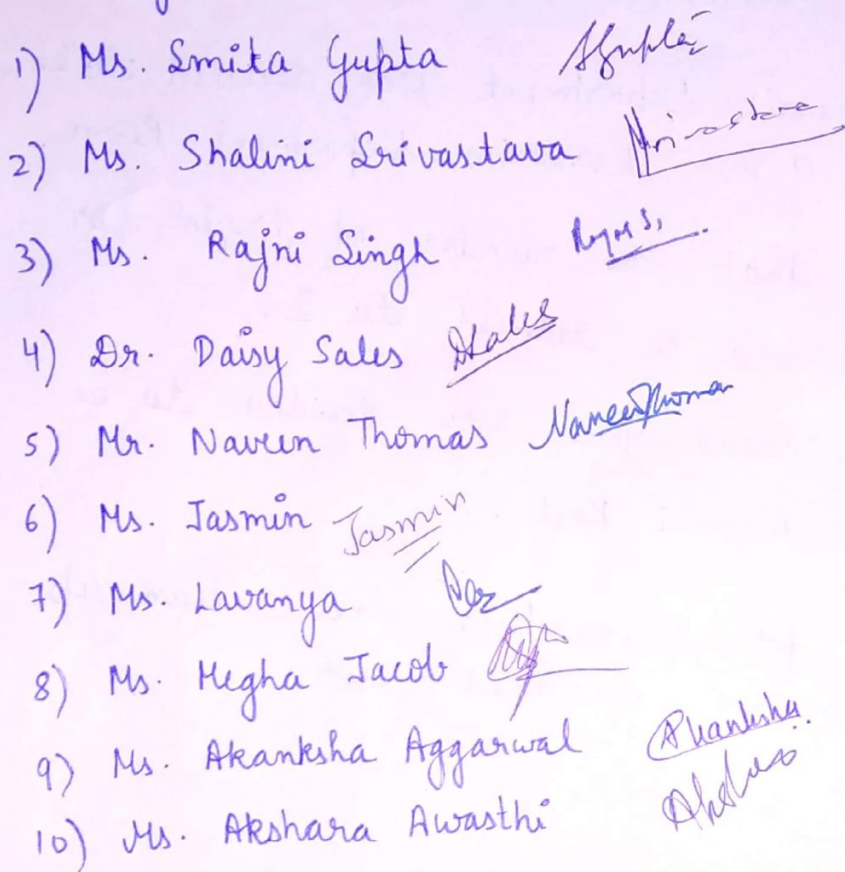 1) Ms. Smita Gupta SGupta
2) Ms. Shalini Srivastava Srivastava
3) Ms. Rajni Singh
4) Dr. Daisy Sales DSales
5) Mr. Naveen Thomas NaveenThomas
6) Ms. Jasmin Jasmin
7) Ms. Lavanya
8) Ms. Megha Jacob
9) Ms. Akanksha Aggarwal Akanksha
10) Ms. Akshara Awasthi